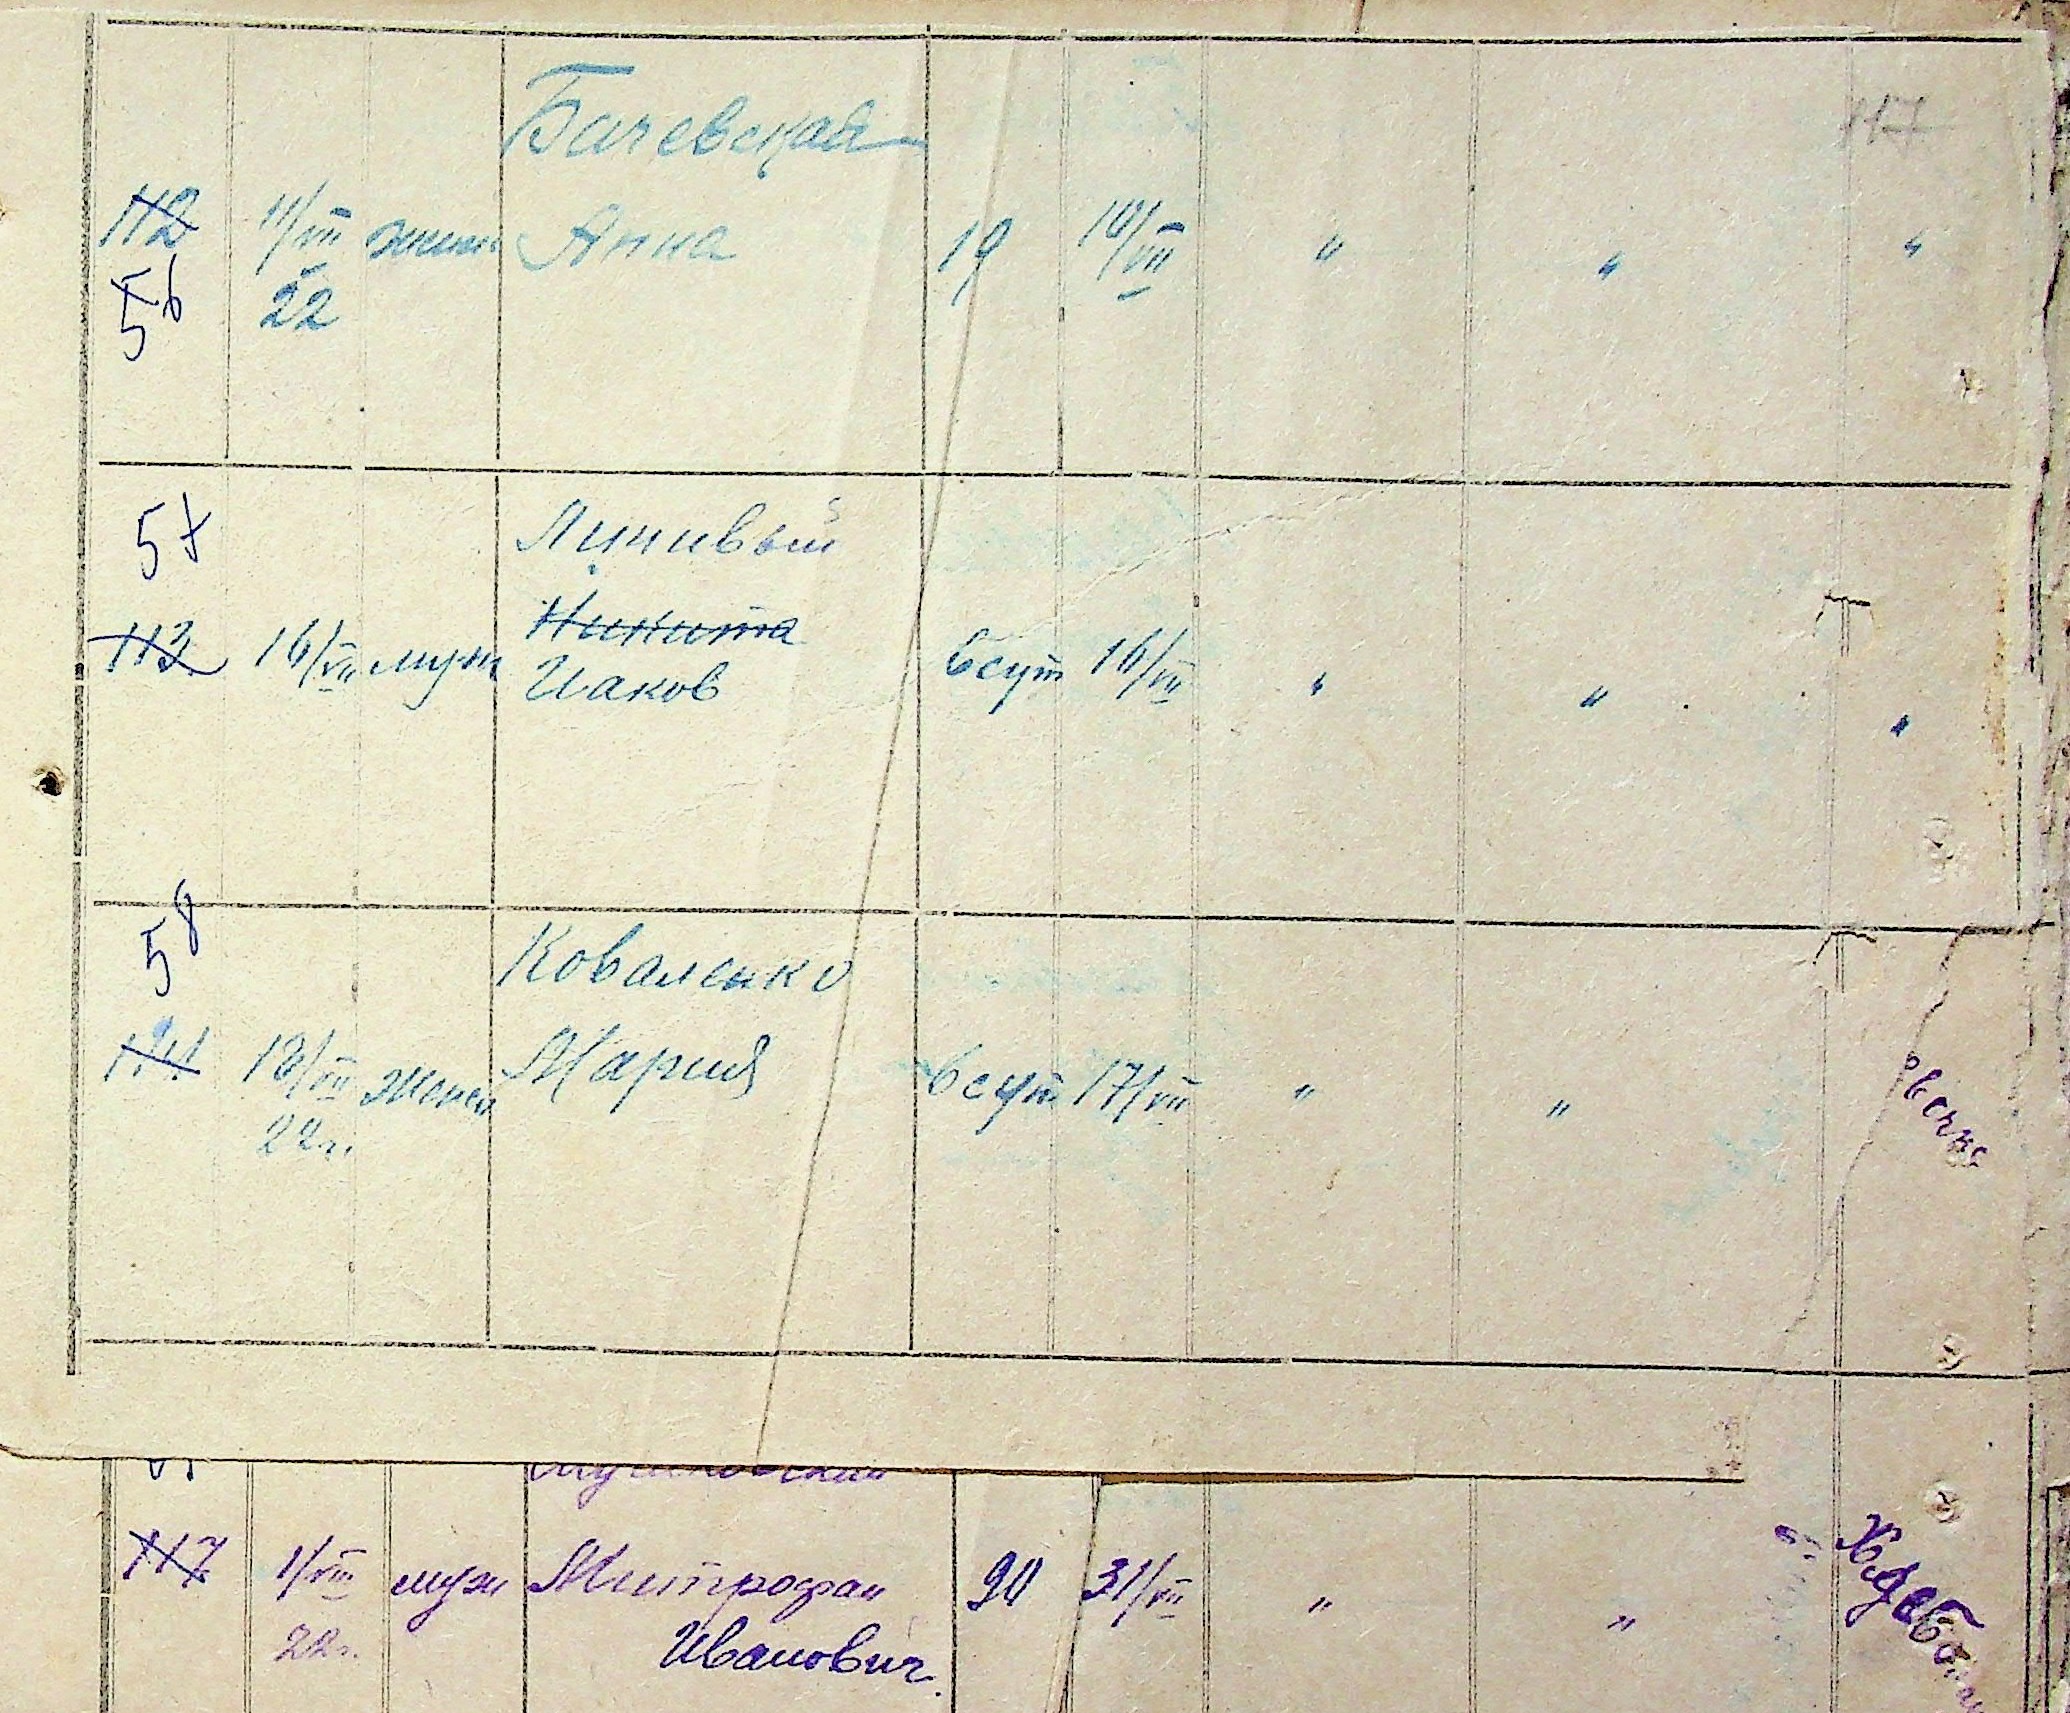 117
Бачевская
112 11/VII жен Анна 19 10/VII " " "
56 22
57 Личивый
Никита
113 16/VII муж Иаков 6 сут 16/VII " " "
58 Коваленко
114 18/VII женск Мария 6 сут 17/VII " "
22 г.
117 1/VIII муж Митрофан 90 31/VII " "
22 г. Иванович.